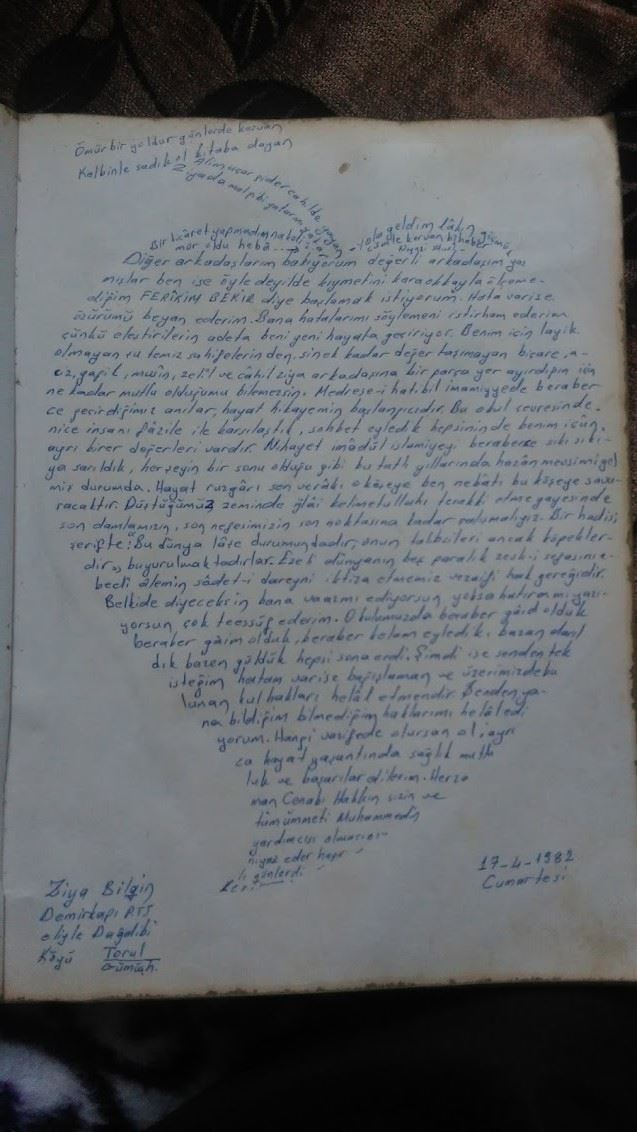 Ömür bir yoldur günlerde kervan
Kalbinle sadık ol kitaba dayan
Alim uçar gider cahilde yayan
Ya da mal gibi
Bir ticaret yapmadım nakdi
mür oldu heba
Yola geldim lâkin
kervan bihaber
Diğer arkadaşlarım bakıyorum değerli arkadaşım yaz
mışlar ben ise öyle deyilde kıymetini kara okkayla ölçeme-
diğim FERİKİM BEKİR diye başlamak istiyorum. Hata varise
özürümü beyan ederim. Bana hatalarımı söylemeni istirham ederim
çünkü eleştirilerin adeta beni yeni hayata geçiriyor. Benim için layık
olmayan şu temiz sahifelerinden, sinek kadar değer taşımayan biçare, a-
ciz, gafil, zelil ve cahil ziya arkadaşına bir parça yer ayırdığın için
ne kadar mutlu olduğumu bilemezsin. Medrese-i hatibil imamiyyede beraber-
ce geçirdiğimiz anılar, hayat hikayemin başlangıcıdır. Bu okul çevresinde
nice insanı fâzile ile karşılaştık, sohbet eyledik hepsininde benim için
ayrı birer değerleri vardır. Nihayet imâdül islamiyeyi beraberce sıkı sıkı-
ya sarıldık, herşeyin bir sonu olduğu gibi bu tatlı yıllarında hazân mevsimi gel
miş durumda. Hayat rüzgârı sen verâkı o köşeye ben nebatı bu köşeye savu-
racaktır. Düştüğümüz zeminde ğlâi kelimetullahı terakki etme gayesinde
son damlamızın, son nefesimizin son noktasına kadar çalışmalıyız. Bir hadisi
şerifte: Bu dünya lâşe durumundadır, onun talibcileri ancak köpekler-
dir,, buyurulmaktadırlar. Ezeli dünyanın beş paralık zevk-i sefasını e-
bedî âlemin sâdet-i dareyni iktiza etmemiz vezaifi hak gereğidir.
Belkide diyeceksin bana vaazmı ediyorsun yoksa hatıramı yazı-
yorsun çok teessüf ederim. Okulumuzda beraber gâid olduk
beraber gâim olduk, beraber kelam eyledik, bazan darıl
dık bazen güldük hepsi sona erdi. Şimdi ise senden tek
isteğim hatam varise bağışlaman ve üzerimizde bu
lunan kul hakları helâl etmendir. Benden ya-
na bildiğim bilmediğim haklarımı helâl edi
yorum. Hangi vazifede olursan ol, ayrı
ca hayat yaşantında sağlık mutlu
luk ve başarılar dilerim. Herza
man Cenabı Hakkın sizin ve
tüm ümmeti Muhammedin
yardımcısı olmasını
niyaz eder hayır
lı günlerdi
17-4-1982
Cumartesi
Ziya Bilgin
Demirkapı PTT
eliyle Dağdibi
Köyü Torul
Gümüşh.